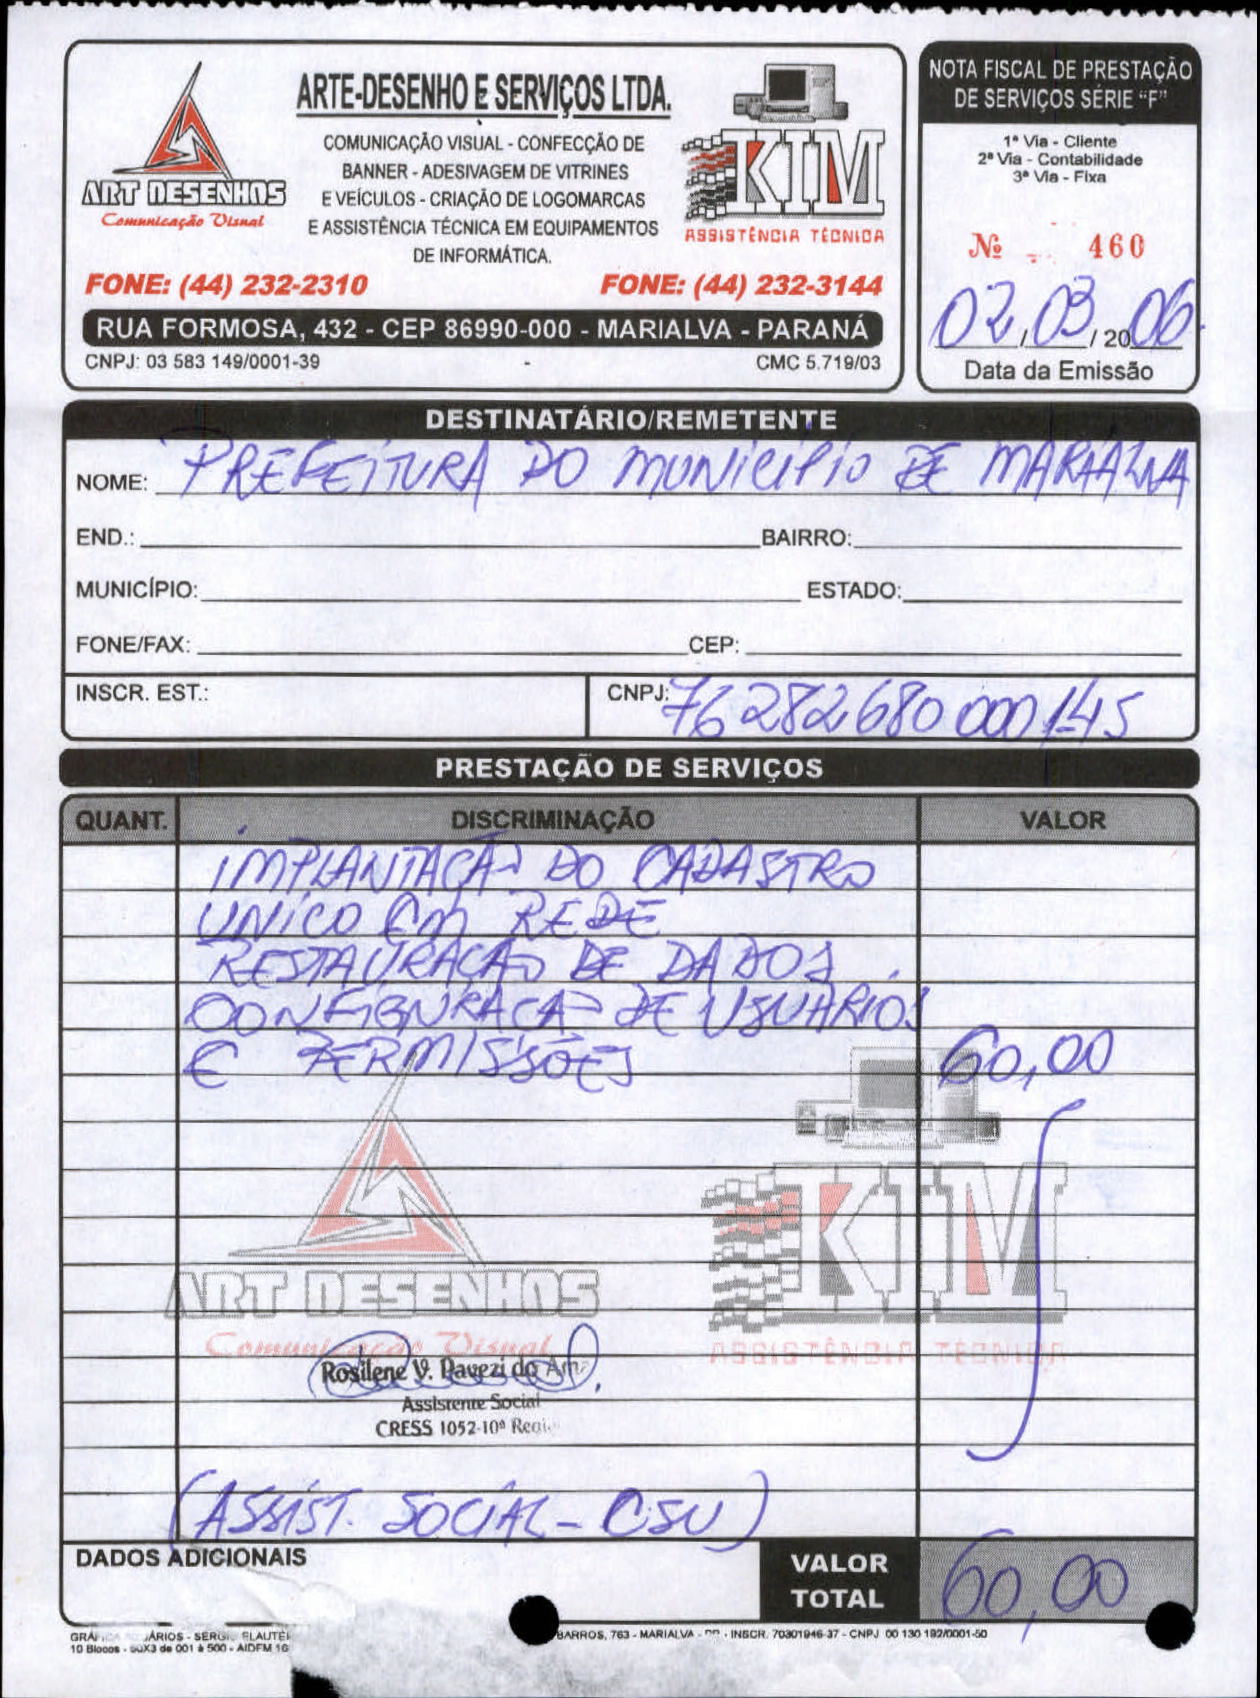 ARTE-DESENHO E SERVIÇOS LTDA.
COMUNICAÇÃO VISUAL - CONFECÇÃO DE
BANNER - ADESIVAGEM DE VITRINES
E VEÍCULOS - CRIAÇÃO DE LOGOMARCAS
E ASSISTÊNCIA TÉCNICA EM EQUIPAMENTOS
DE INFORMÁTICA.
ART DESENHOS
Comunicação Visual
KIM
ASSISTÊNCIA TÉCNICA
FONE: (44) 232-2310 FONE: (44) 232-3144
RUA FORMOSA, 432 - CEP 86990-000 - MARIALVA - PARANÁ
CNPJ: 03 583 149/0001-39 CMC 5.719/03
NOTA FISCAL DE PRESTAÇÃO
DE SERVIÇOS SÉRIE "F"
1ª Via - Cliente
2ª Via - Contabilidade
3ª Via - Fixa
Nº 460
02/03/2006.
Data da Emissão
DESTINATÁRIO/REMETENTE
NOME: PREFEITURA DO MUNICÍPIO DE MARIALVA
END.: BAIRRO:
MUNICÍPIO: ESTADO:
FONE/FAX: CEP:
INSCR. EST.: CNPJ: 76 282 680 0001-45
PRESTAÇÃO DE SERVIÇOS
QUANT. DISCRIMINAÇÃO VALOR
IMPLANTAÇÃO DO CADASTRO
UNICO Em REDE
RESTAURAÇÃO DE DADOS
CONFIGURAÇÃO DE USUÁRIOS
E PERMISSÕES 60,00
ART DESENHOS
Comunicação Visual
KIM
ASSISTÊNCIA TÉCNICA
Rosilene V. Pavezi do
Assistente Social
CRESS 1052-10ª
(ASSIST. SOCIAL - CSU)
DADOS ADICIONAIS
VALOR
TOTAL 60,00
BARROS, 763 - MARIALVA - PR - INSCR. 70301946-37 - CNPJ 00 130 192/0001-50
10 Blocos - 50X3 de 001 à 500 - AIDFM